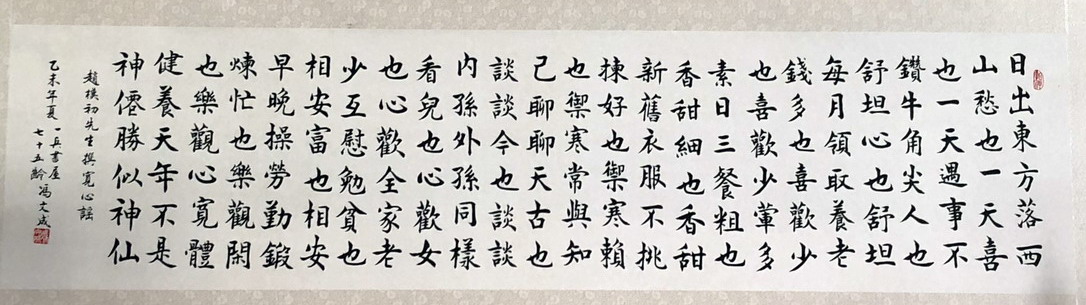 日出東方落西
山愁也一天喜
也一天遇事不
鑽牛角尖人也
舒坦心也舒坦
每月領取養老
錢多也喜歡少
也喜歡少葷多
素日三餐粗也
香甜細也香甜
新舊衣服不挑
揀好也禦寒賴
也禦寒常與知
己聊聊天古也
談談今也談談
內孫外孫同樣
看兒也心歡女
也心歡全家老
少互慰勉貧也
相安富也相安
早晚操勞勤鍛
煉忙也樂觀閑
也樂觀心寬體
健養天年不是
神僊勝似神仙
趙樸初先生撰寬心謠
乙未年夏一兵書屋
七十五齡馮文成